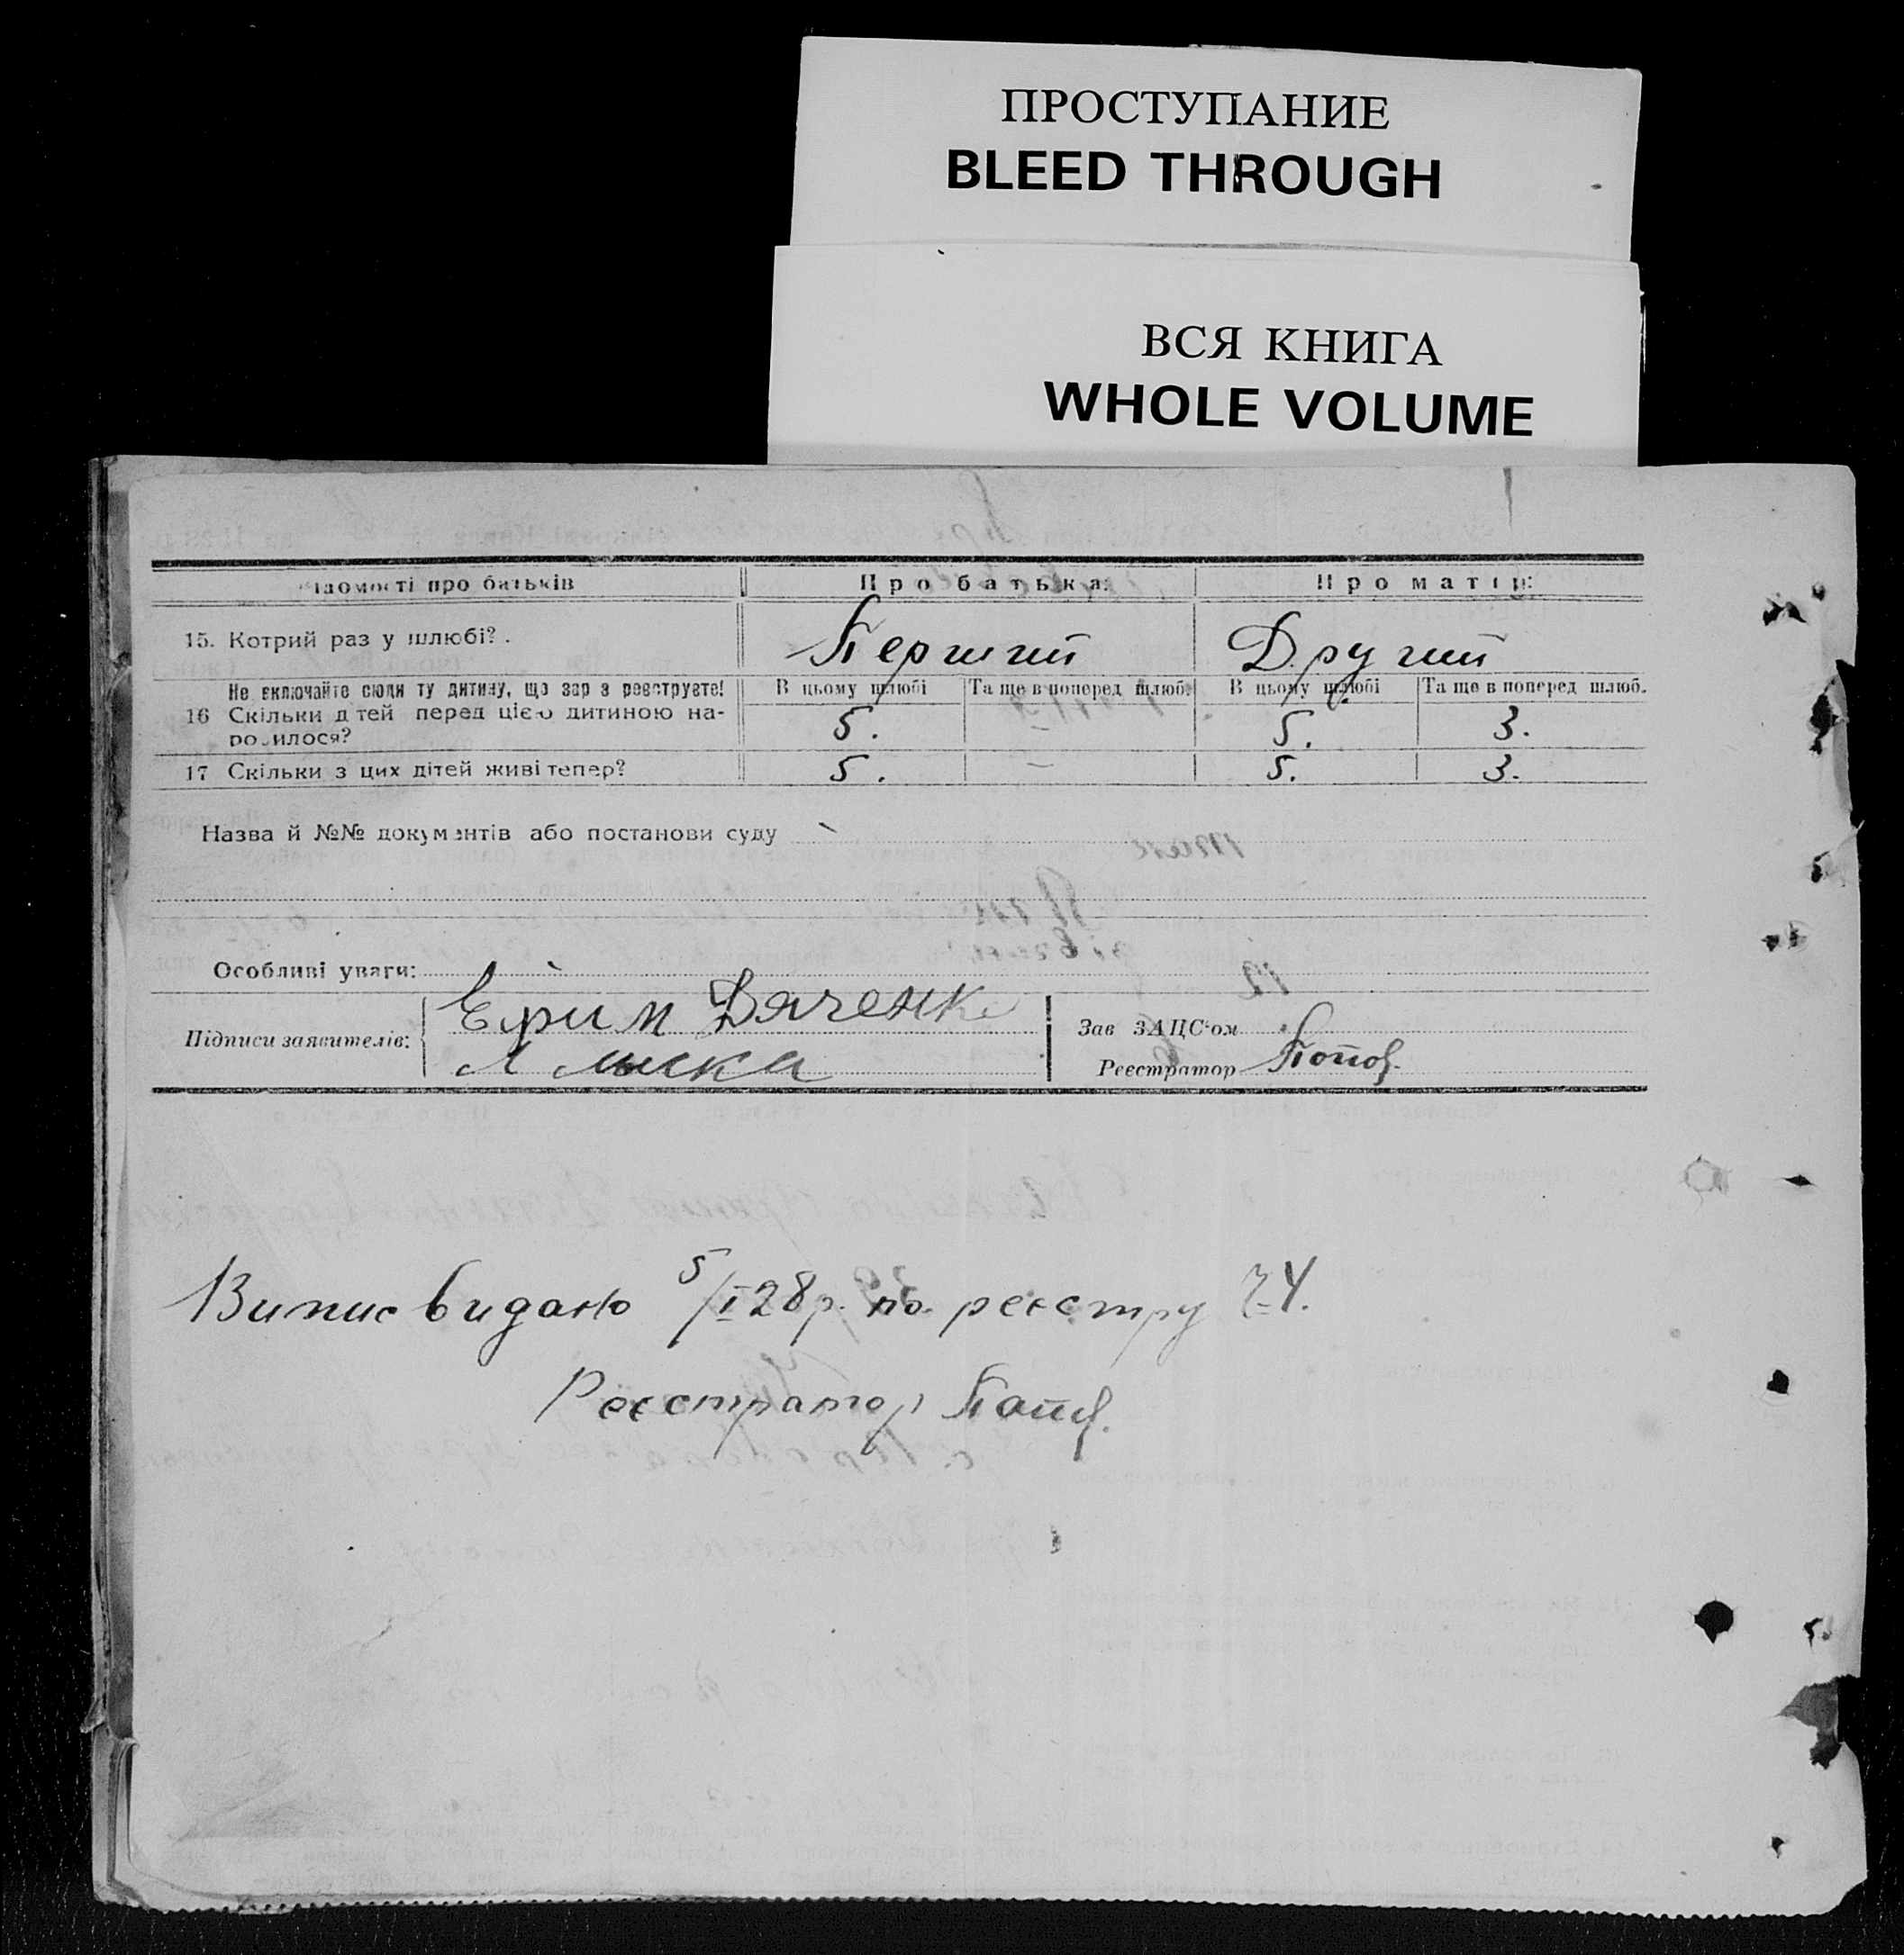 ПРОСТУПАНИЕ
BLEED THROUGH
ВСЯ КНИГА
WHOLE VOLUME
Відомості про батьків Про батька: Про матір:
15. Котрий раз у шлюбі? . Перший Другий
Не включайте сюди ту дитину, що зараз реєструєте! В цьому шлюбі Та ще в поперед шлюб. В цьому шлюбі Та ще в поперед шлюб.
16 Скільки дітей перед цією дитиною на-
родилося? 5. – 5. 3.
17 Скільки з цих дітей живі тепер? 5. – 5. 3.
Назва й №№ документів або постанови суду
Особливі уваги:
Підписи заявителів: Ефим Дяченко
Зав ЗАЦС'ом
Реєстратор Попов.
Випис видано 5/I 28 р. по реєстру
Реєстратор Попов.